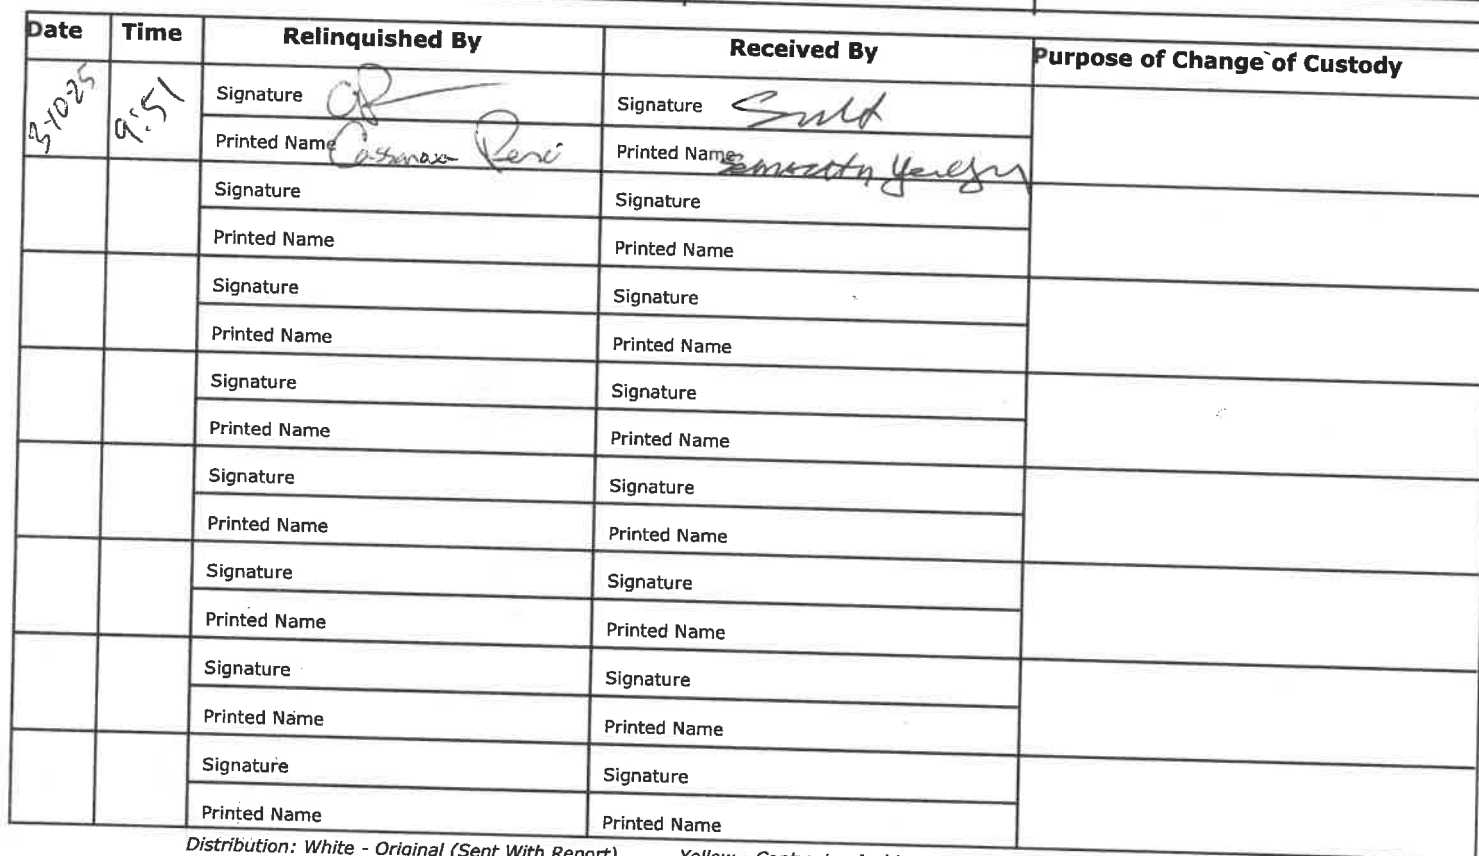 Date Time Relinquished By Received By Purpose of Change of Custody
3-10-25 9:51 Signature Signature
Printed Name Printed Name
Signature Signature
Printed Name Printed Name
Signature Signature
Printed Name Printed Name
Signature Signature
Printed Name Printed Name
Signature Signature
Printed Name Printed Name
Signature Signature
Printed Name Printed Name
Signature Signature
Printed Name Printed Name
Signature Signature
Printed Name Printed Name
Distribution: White - Original (Sent With Report)